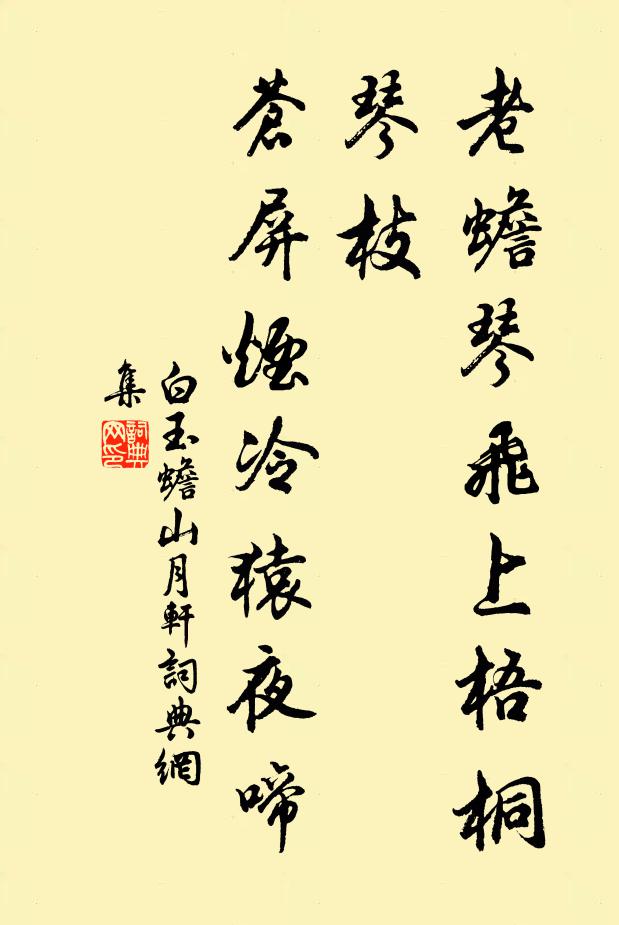 老蟾琴飛上梧桐
琴枝
蒼屏煙冷猿夜啼
白玉蟾山月軒詞典網
集
詞典
网印